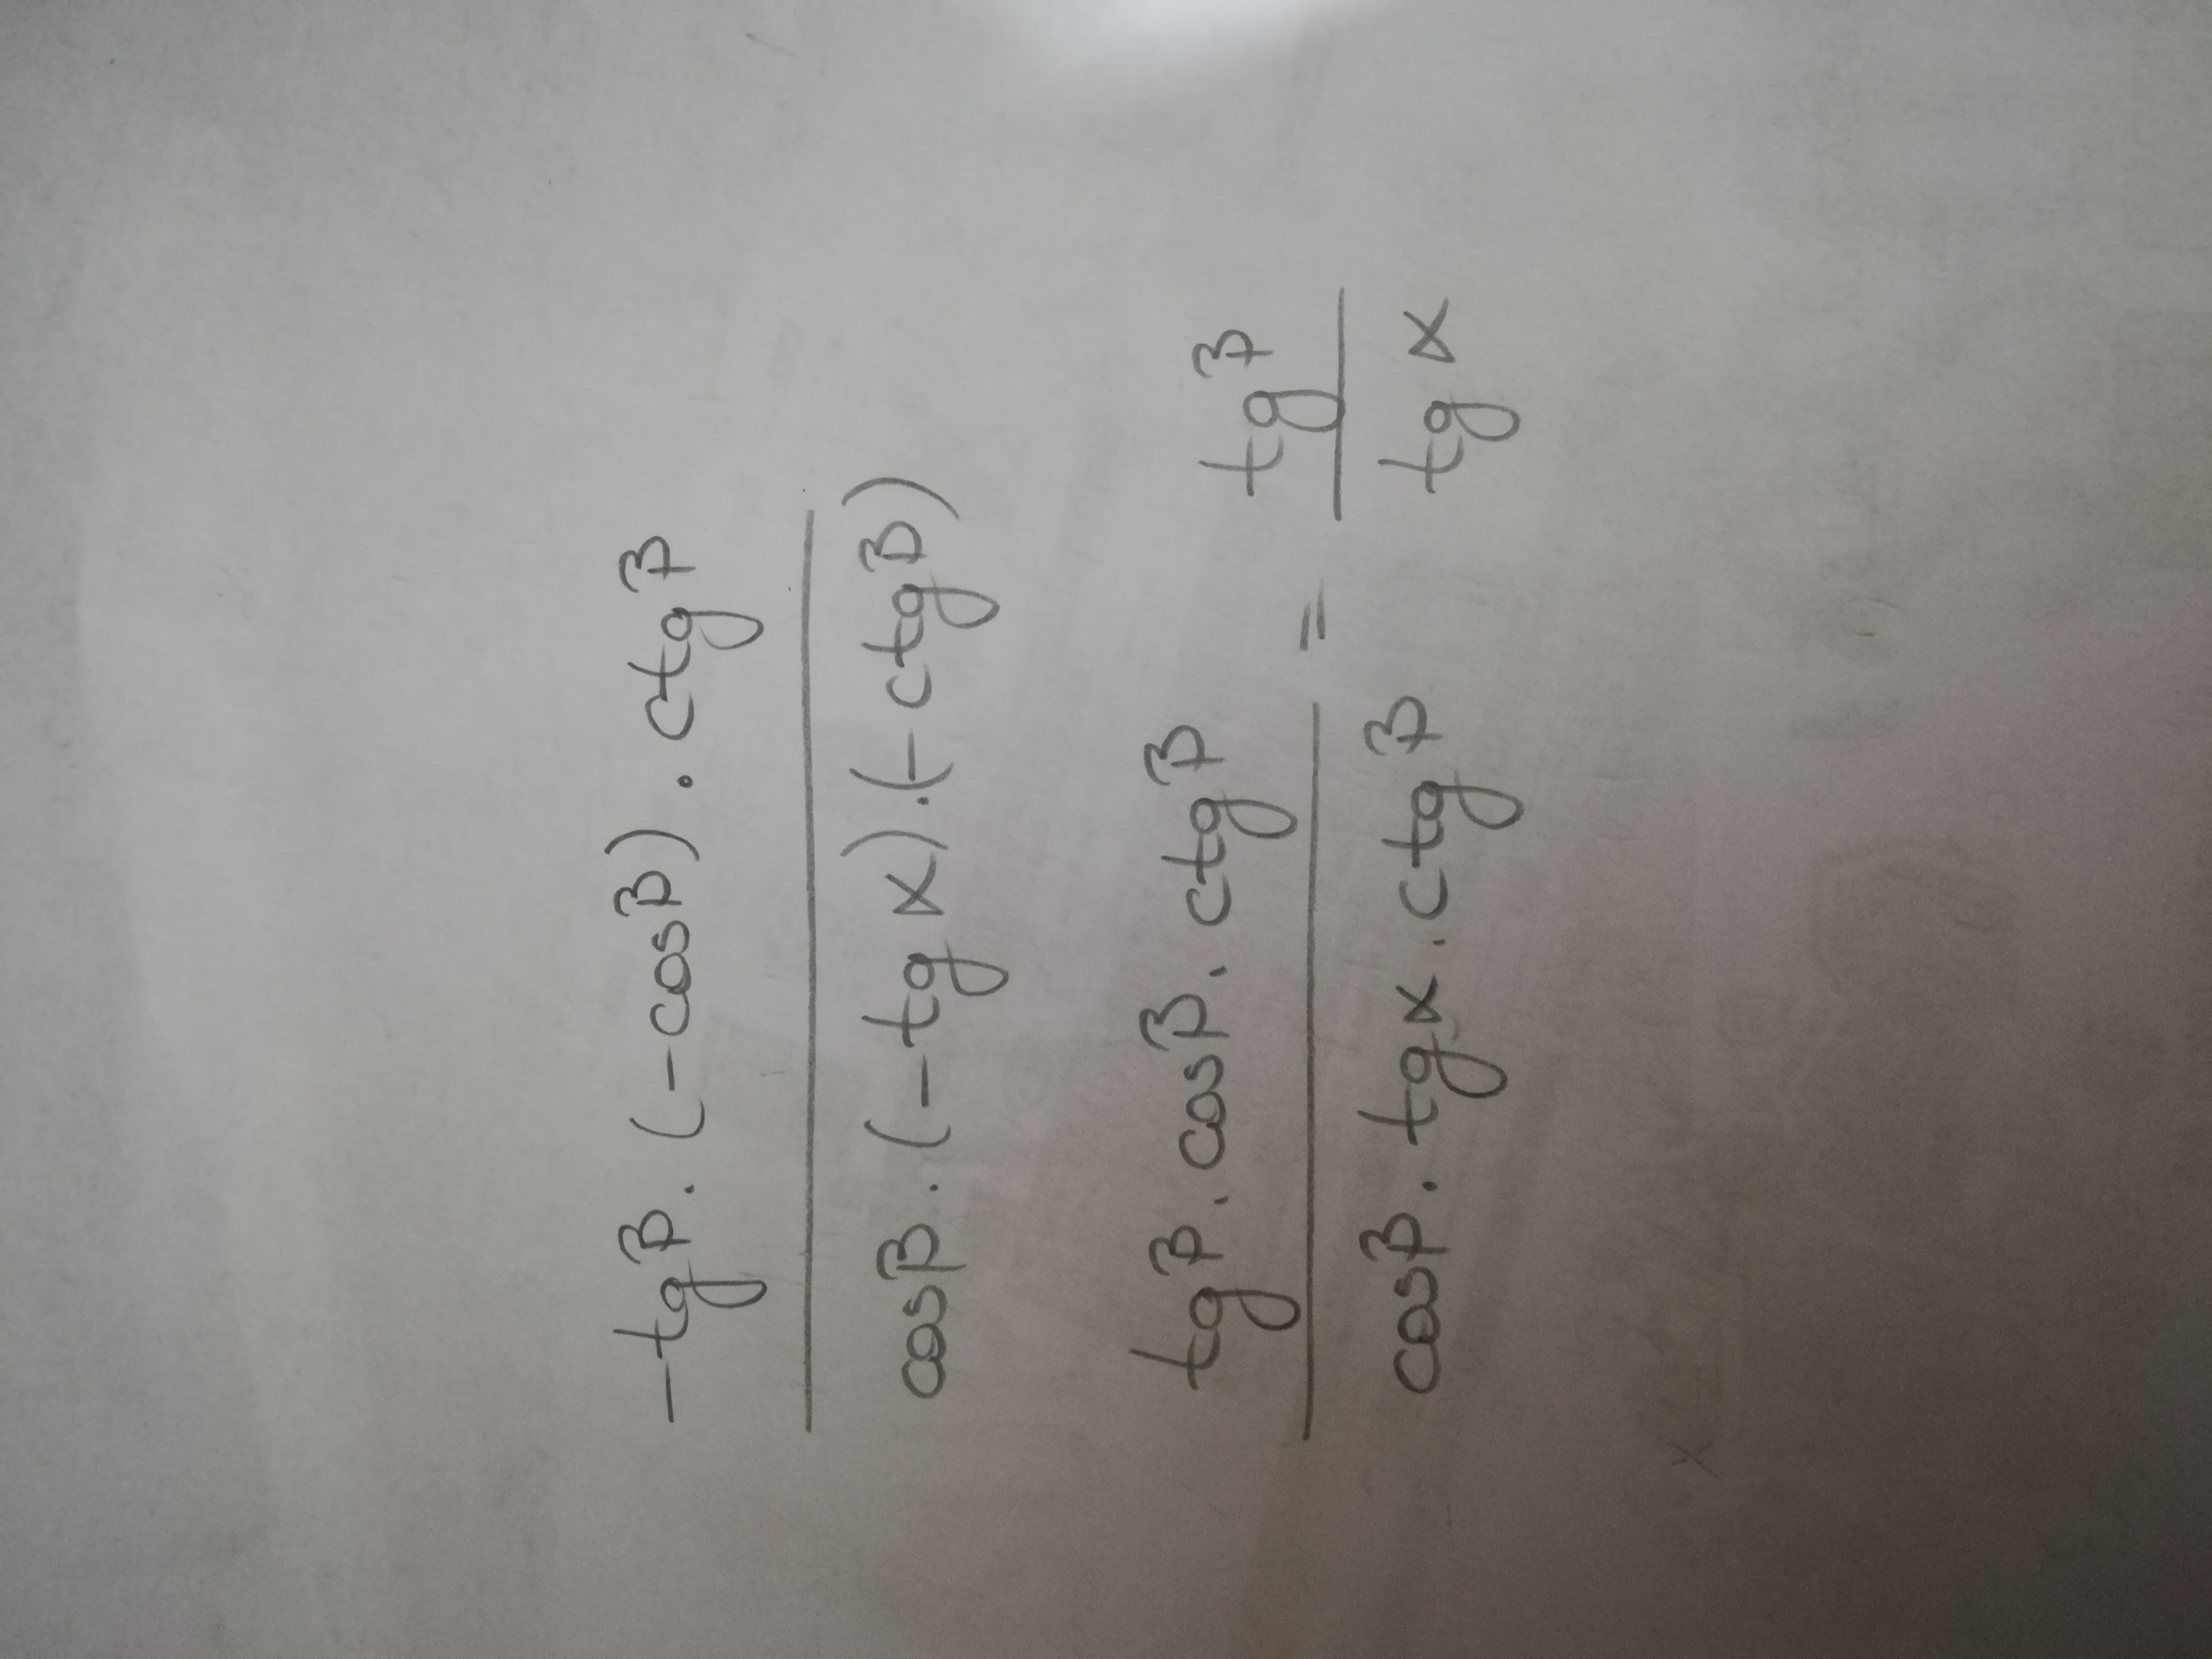 -tgβ · (-cosβ) · ctgβ
cosβ · (-tg α) · (-ctgβ)
tgβ · cosβ · ctgβ = tgβ
cosβ · tgα · ctgβ tg α